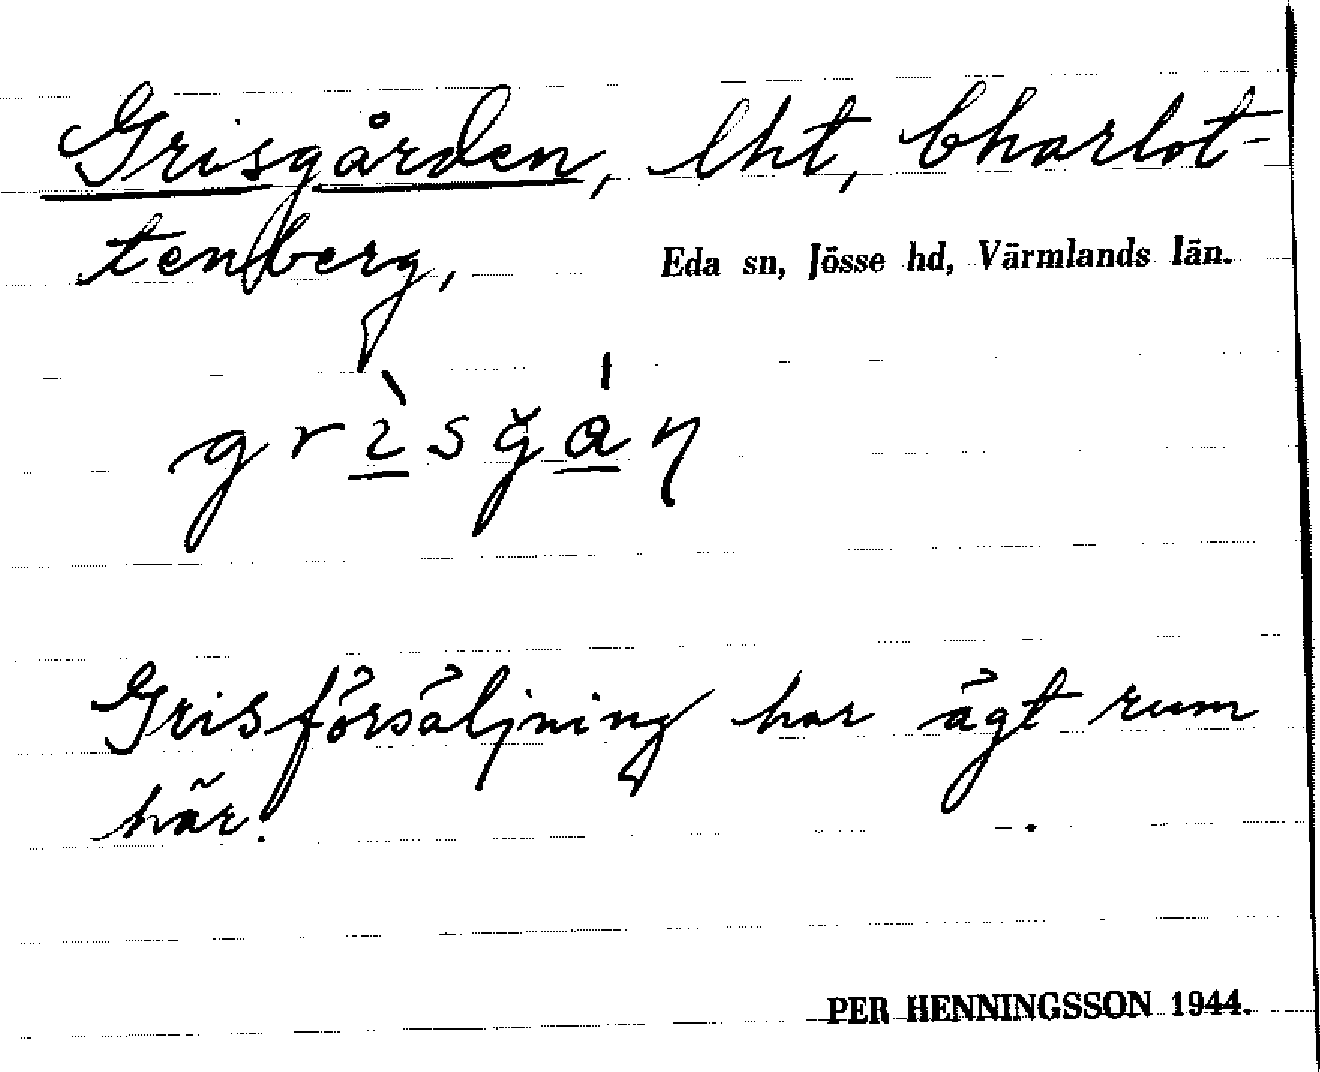 Grisgården, lht, Charlot-
tenberg, Eda sn, Jösse hd, Värmlands län.
Grisförsäljning har ägt rum
här.
PER HENNINGSSON 1944.